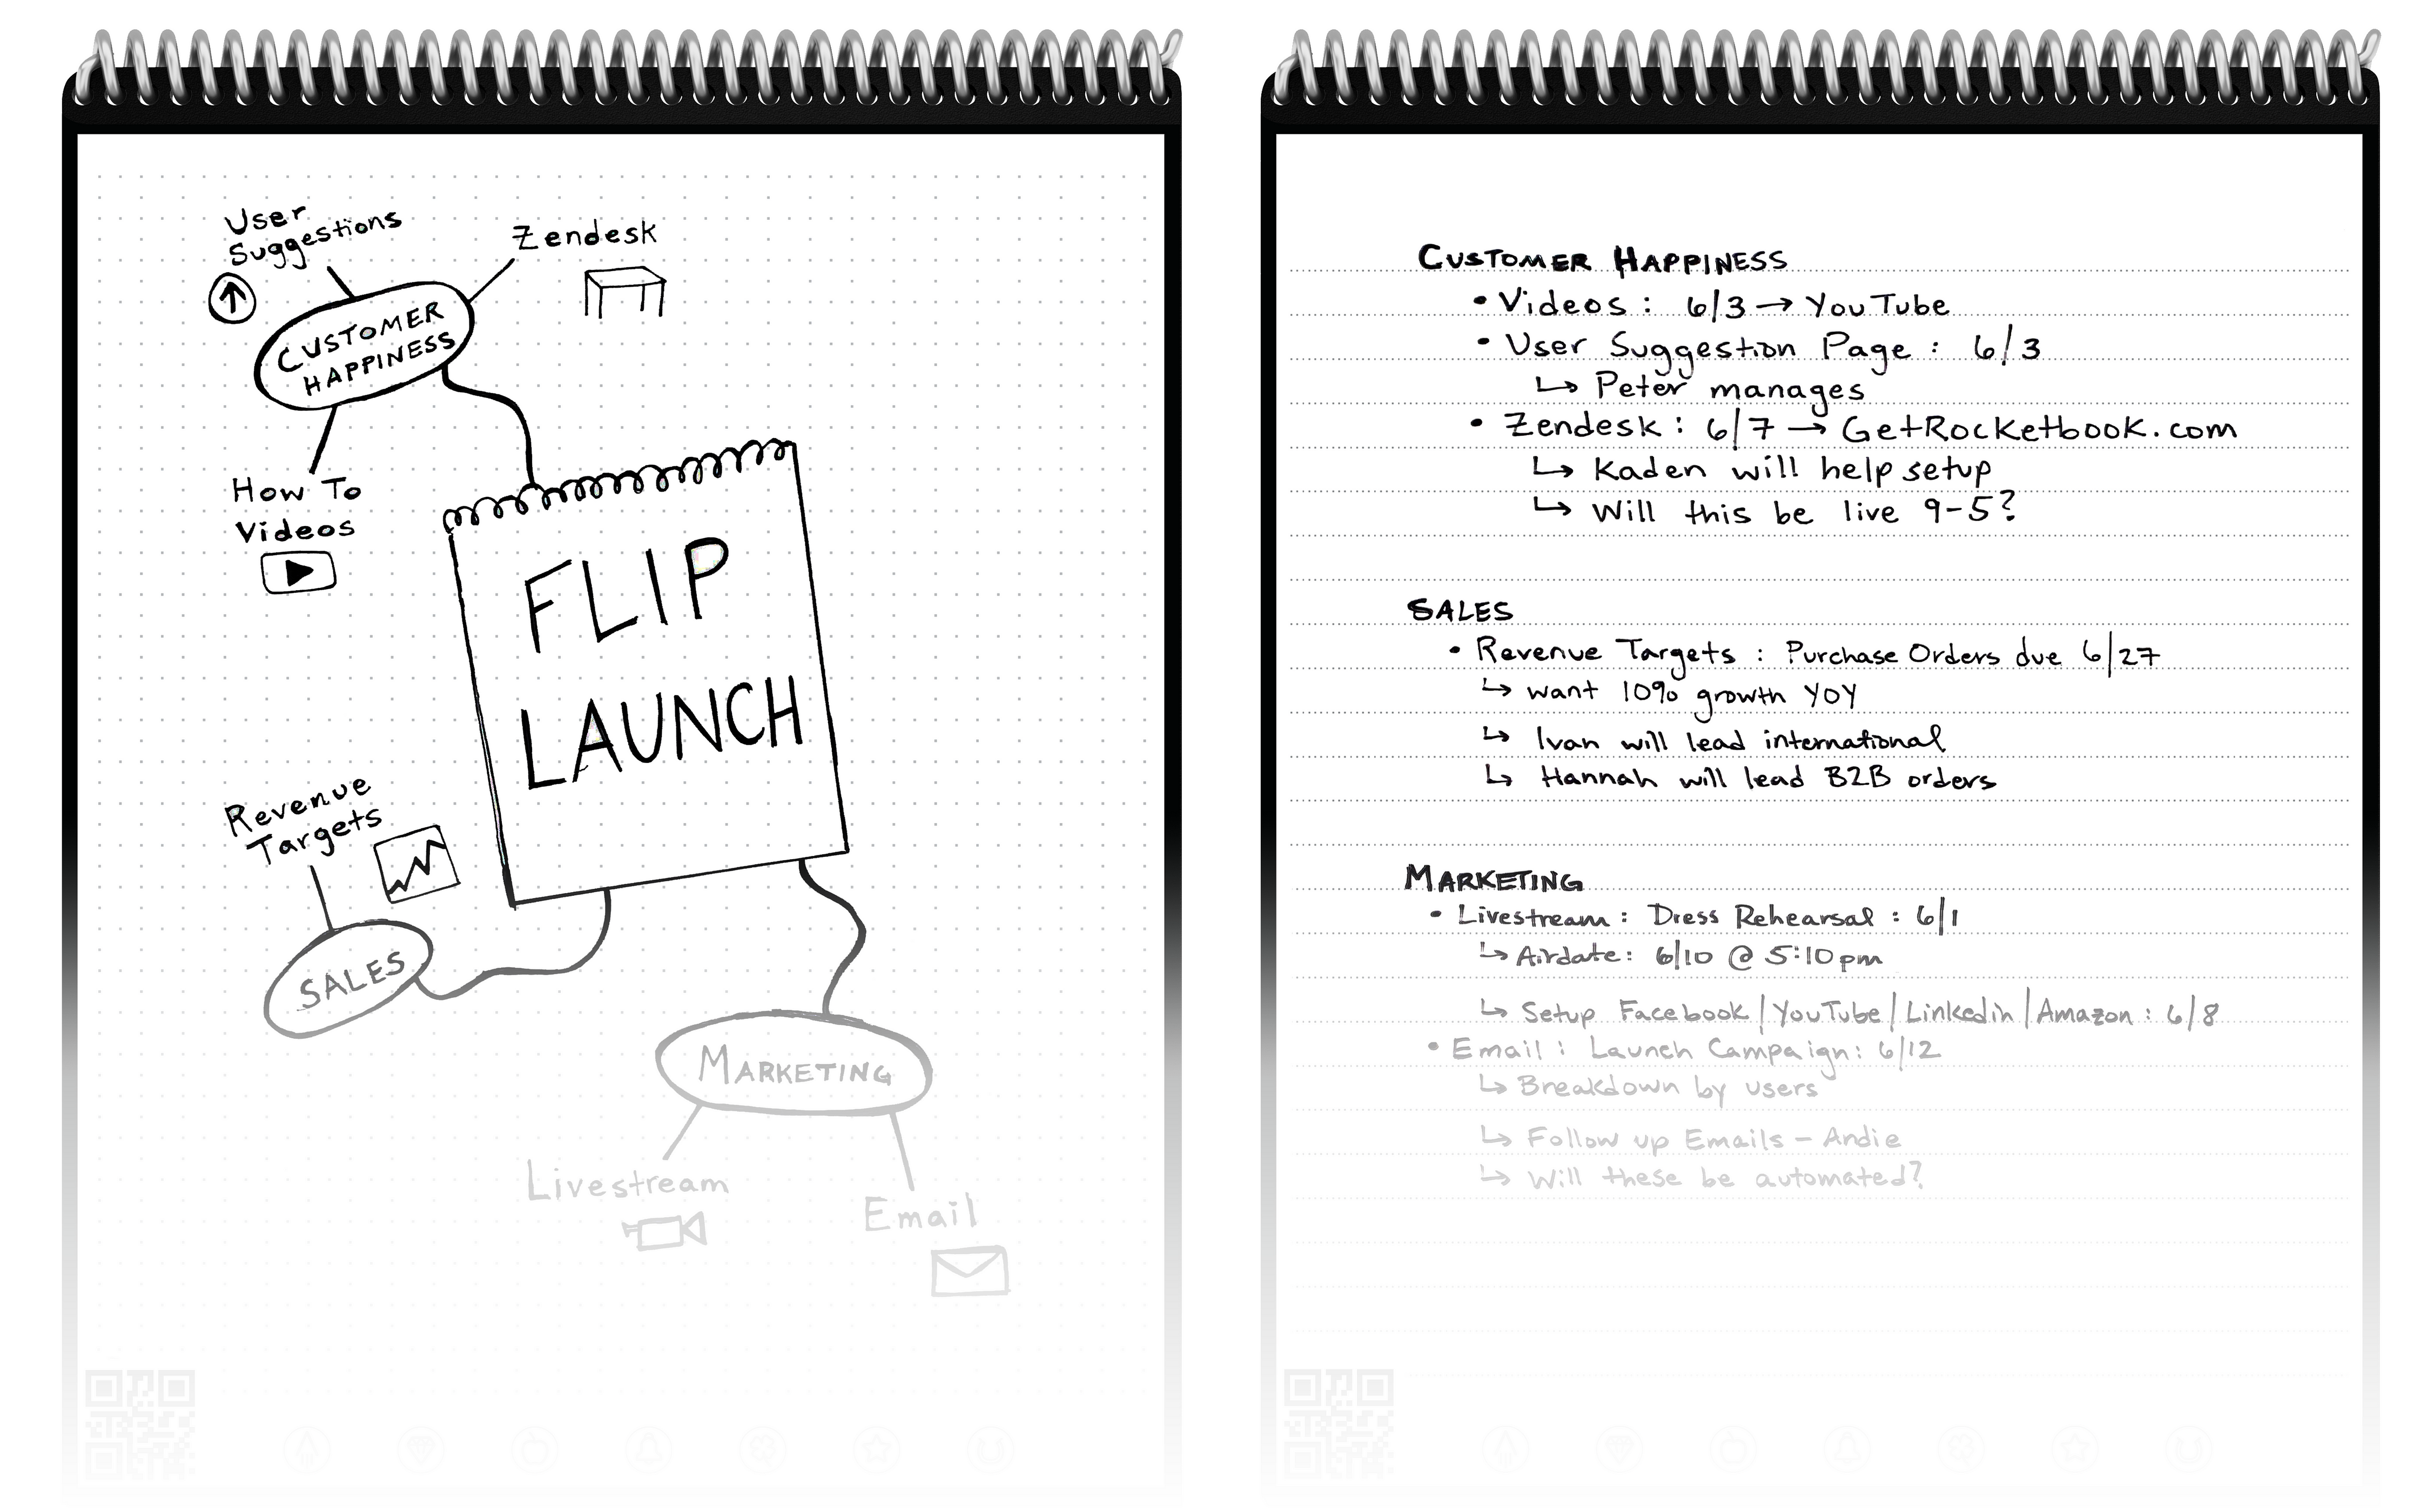 User
Suggestions
Zendesk
CUSTOMER
HAPPINESS
How To
Videos
FLIP
LAUNCH
Revenue
Targets
SALES
MARKETING
Livestream
Email
CUSTOMER HAPPINESS
• Videos : 6/3 → YouTube
• User Suggestion Page : 6/3
↳ Peter manages
• Zendesk : 6/7 → GetRocketbook.com
↳ Kaden will help setup
↳ Will this be live 9-5?
SALES
• Revenue Targets : Purchase Orders due 6/27
↳ want 10% growth YOY
↳ Ivan will lead international
↳ Hannah will lead B2B orders
MARKETING
• Livestream : Dress Rehearsal : 6/1
↳ Airdate: 6/10 @ 5:10pm
↳ Setup Facebook/YouTube/Linkedin/Amazon : 6/8
• Email : Launch Campaign: 6/12
↳ Breakdown by users
↳ Follow up Emails - Andie
↳ Will these be automated?